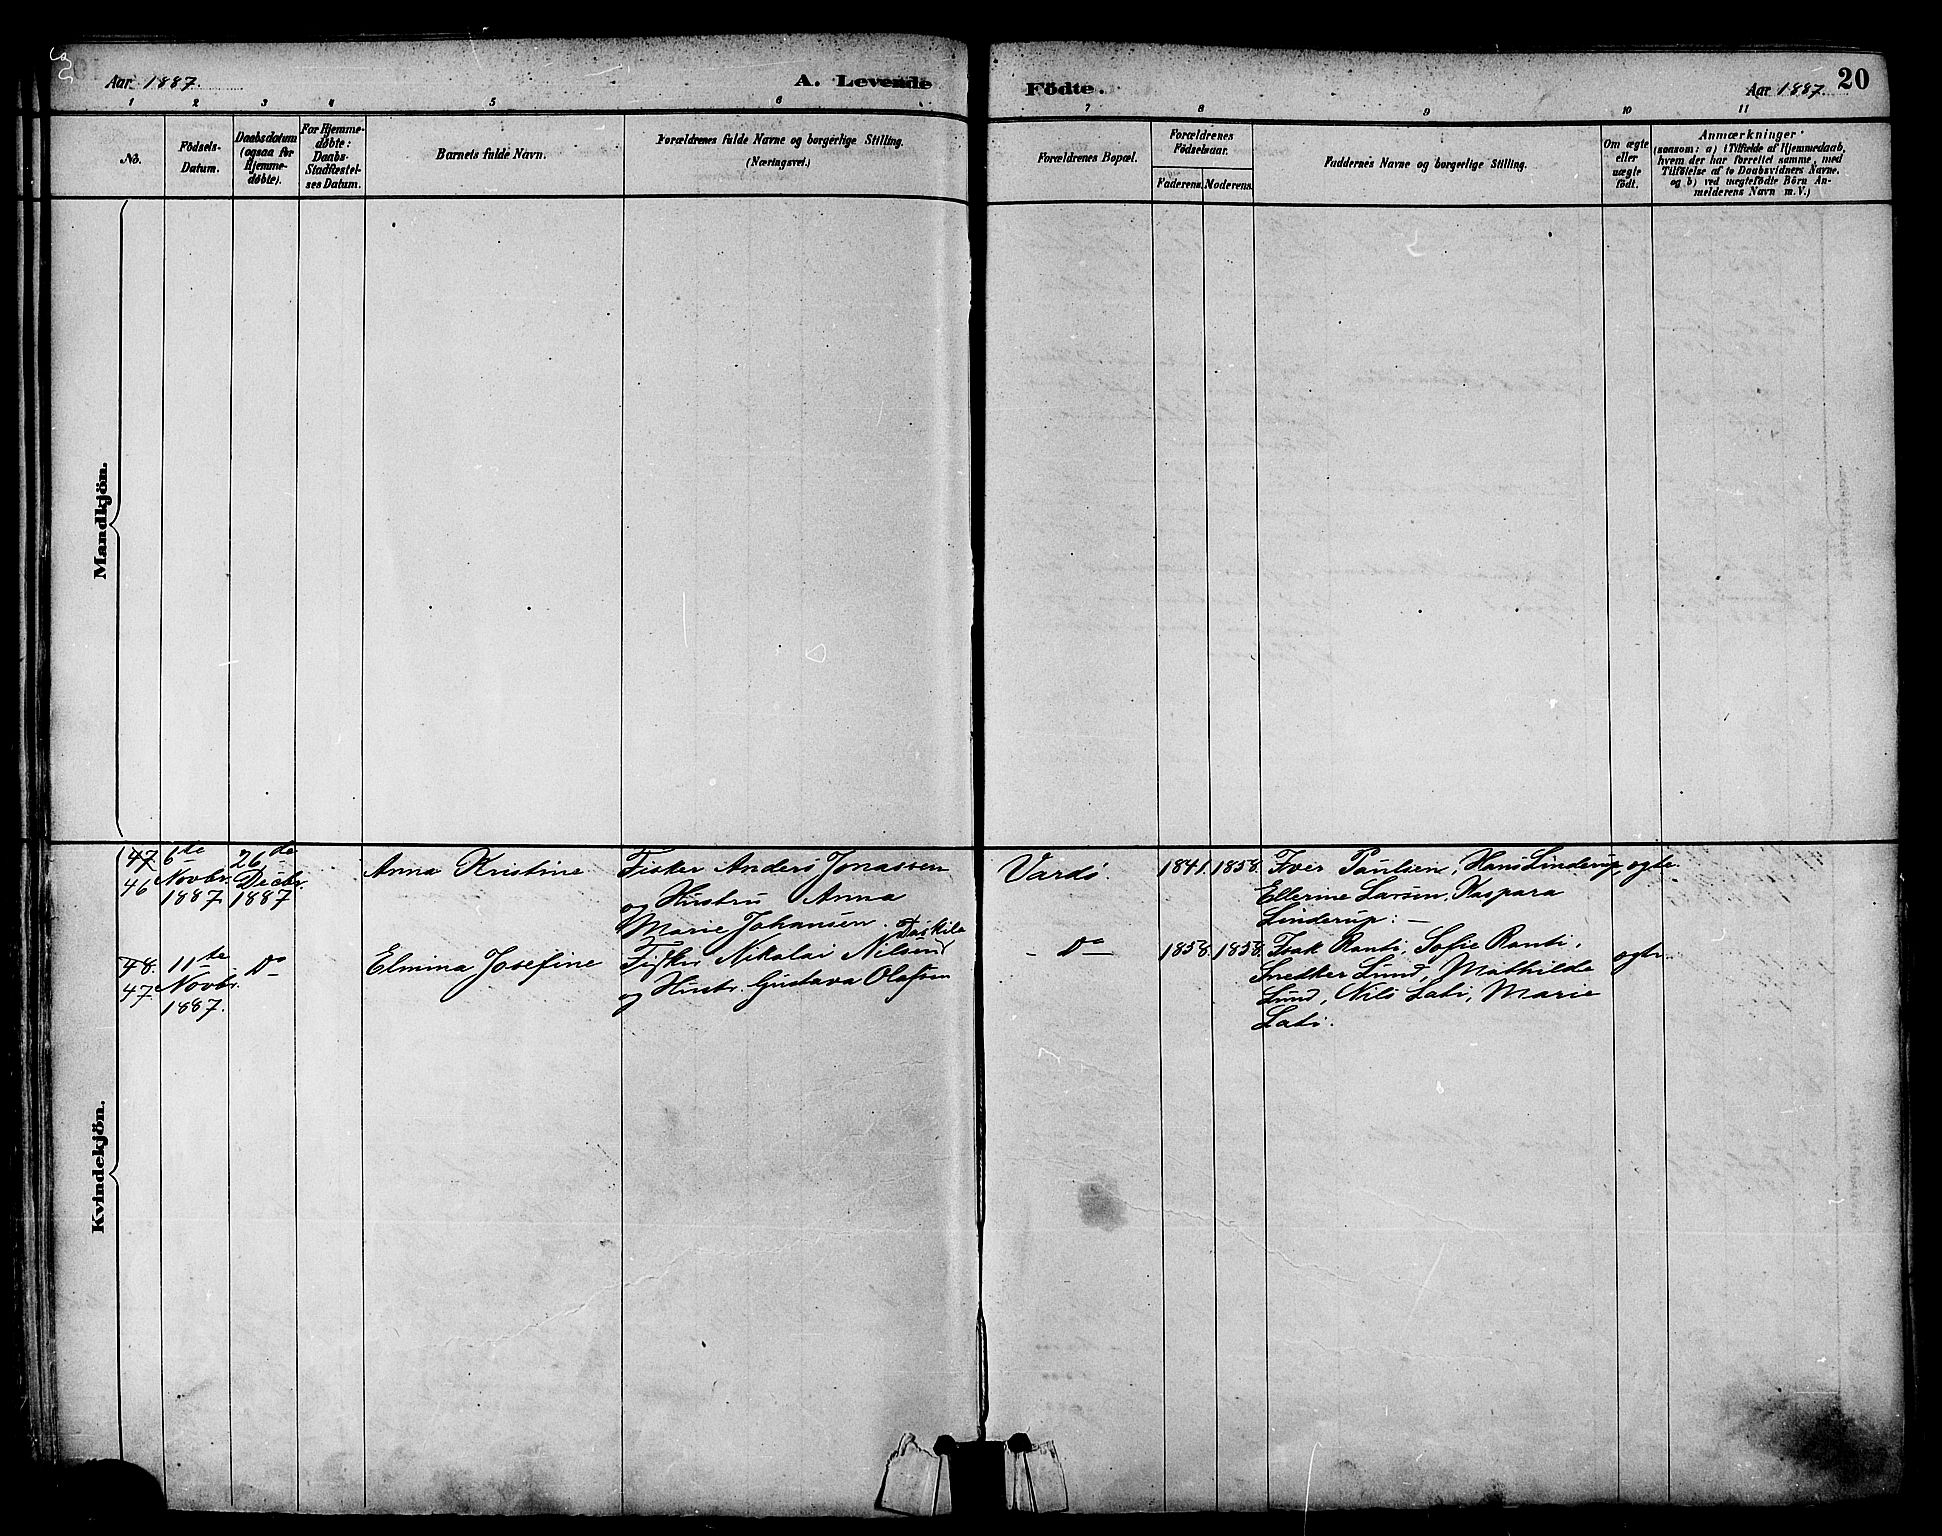 Aar 1887.
A. Levende
Födte.
Aar 1887.
20
1 2 3 4 5 6 7 8 9 10 11
No.
Födsels-
Datum.
Daabsdatum
(ogsaa for
Hjemme-
döbte).
For Hjemme-
døbte:
Daabs-
Stadfæstel-
ses Datum.
Barnets fulde Navn.
Forældrenes fulde Navne og borgerlige Stilling.
(Næringsvei.)
Forældrenes Bopæl.
Forældrenes
Fødselsaar.
Faderens. Moderens.
Faddernes Navne og borgerlige Stilling.
Om ægte
eller
uægte
født.
Anmærkninger
(saasom: a) i Tilfælde af Hjemmedaab,
hvem der har forrettet samme, med
Tilføielse af to Daabsvidners Navne,
og b) ved uægtefødte Börn An-
melderens Navn m. V.)
Mandkjön.
Kvindekjön.
47.
46
6te
Novbr.
1887.
26de
Decbr.
1887
Anna Kristine
Fisker Anders Jonassen
og Hustru Anna
Marie Johansen.
Vardö.
1841. 1858.
Iver Paulsen, Hans Linderup,
Ellerine Larsen, Kaspara
Linderup. —
ægte.
48.
47.
11te
Novbr.
1887.
Do
Elmina Josefine
Daskila
Fisker Nikolai Nilsen
og Hustr. Gustava Olafsen
- Do -
1858. 1858.
Isak Ranti, Sofie Ranti,
Snedker Lund, Mathilde
Lund, Nils Lati, Marie
Lati.
ægte.